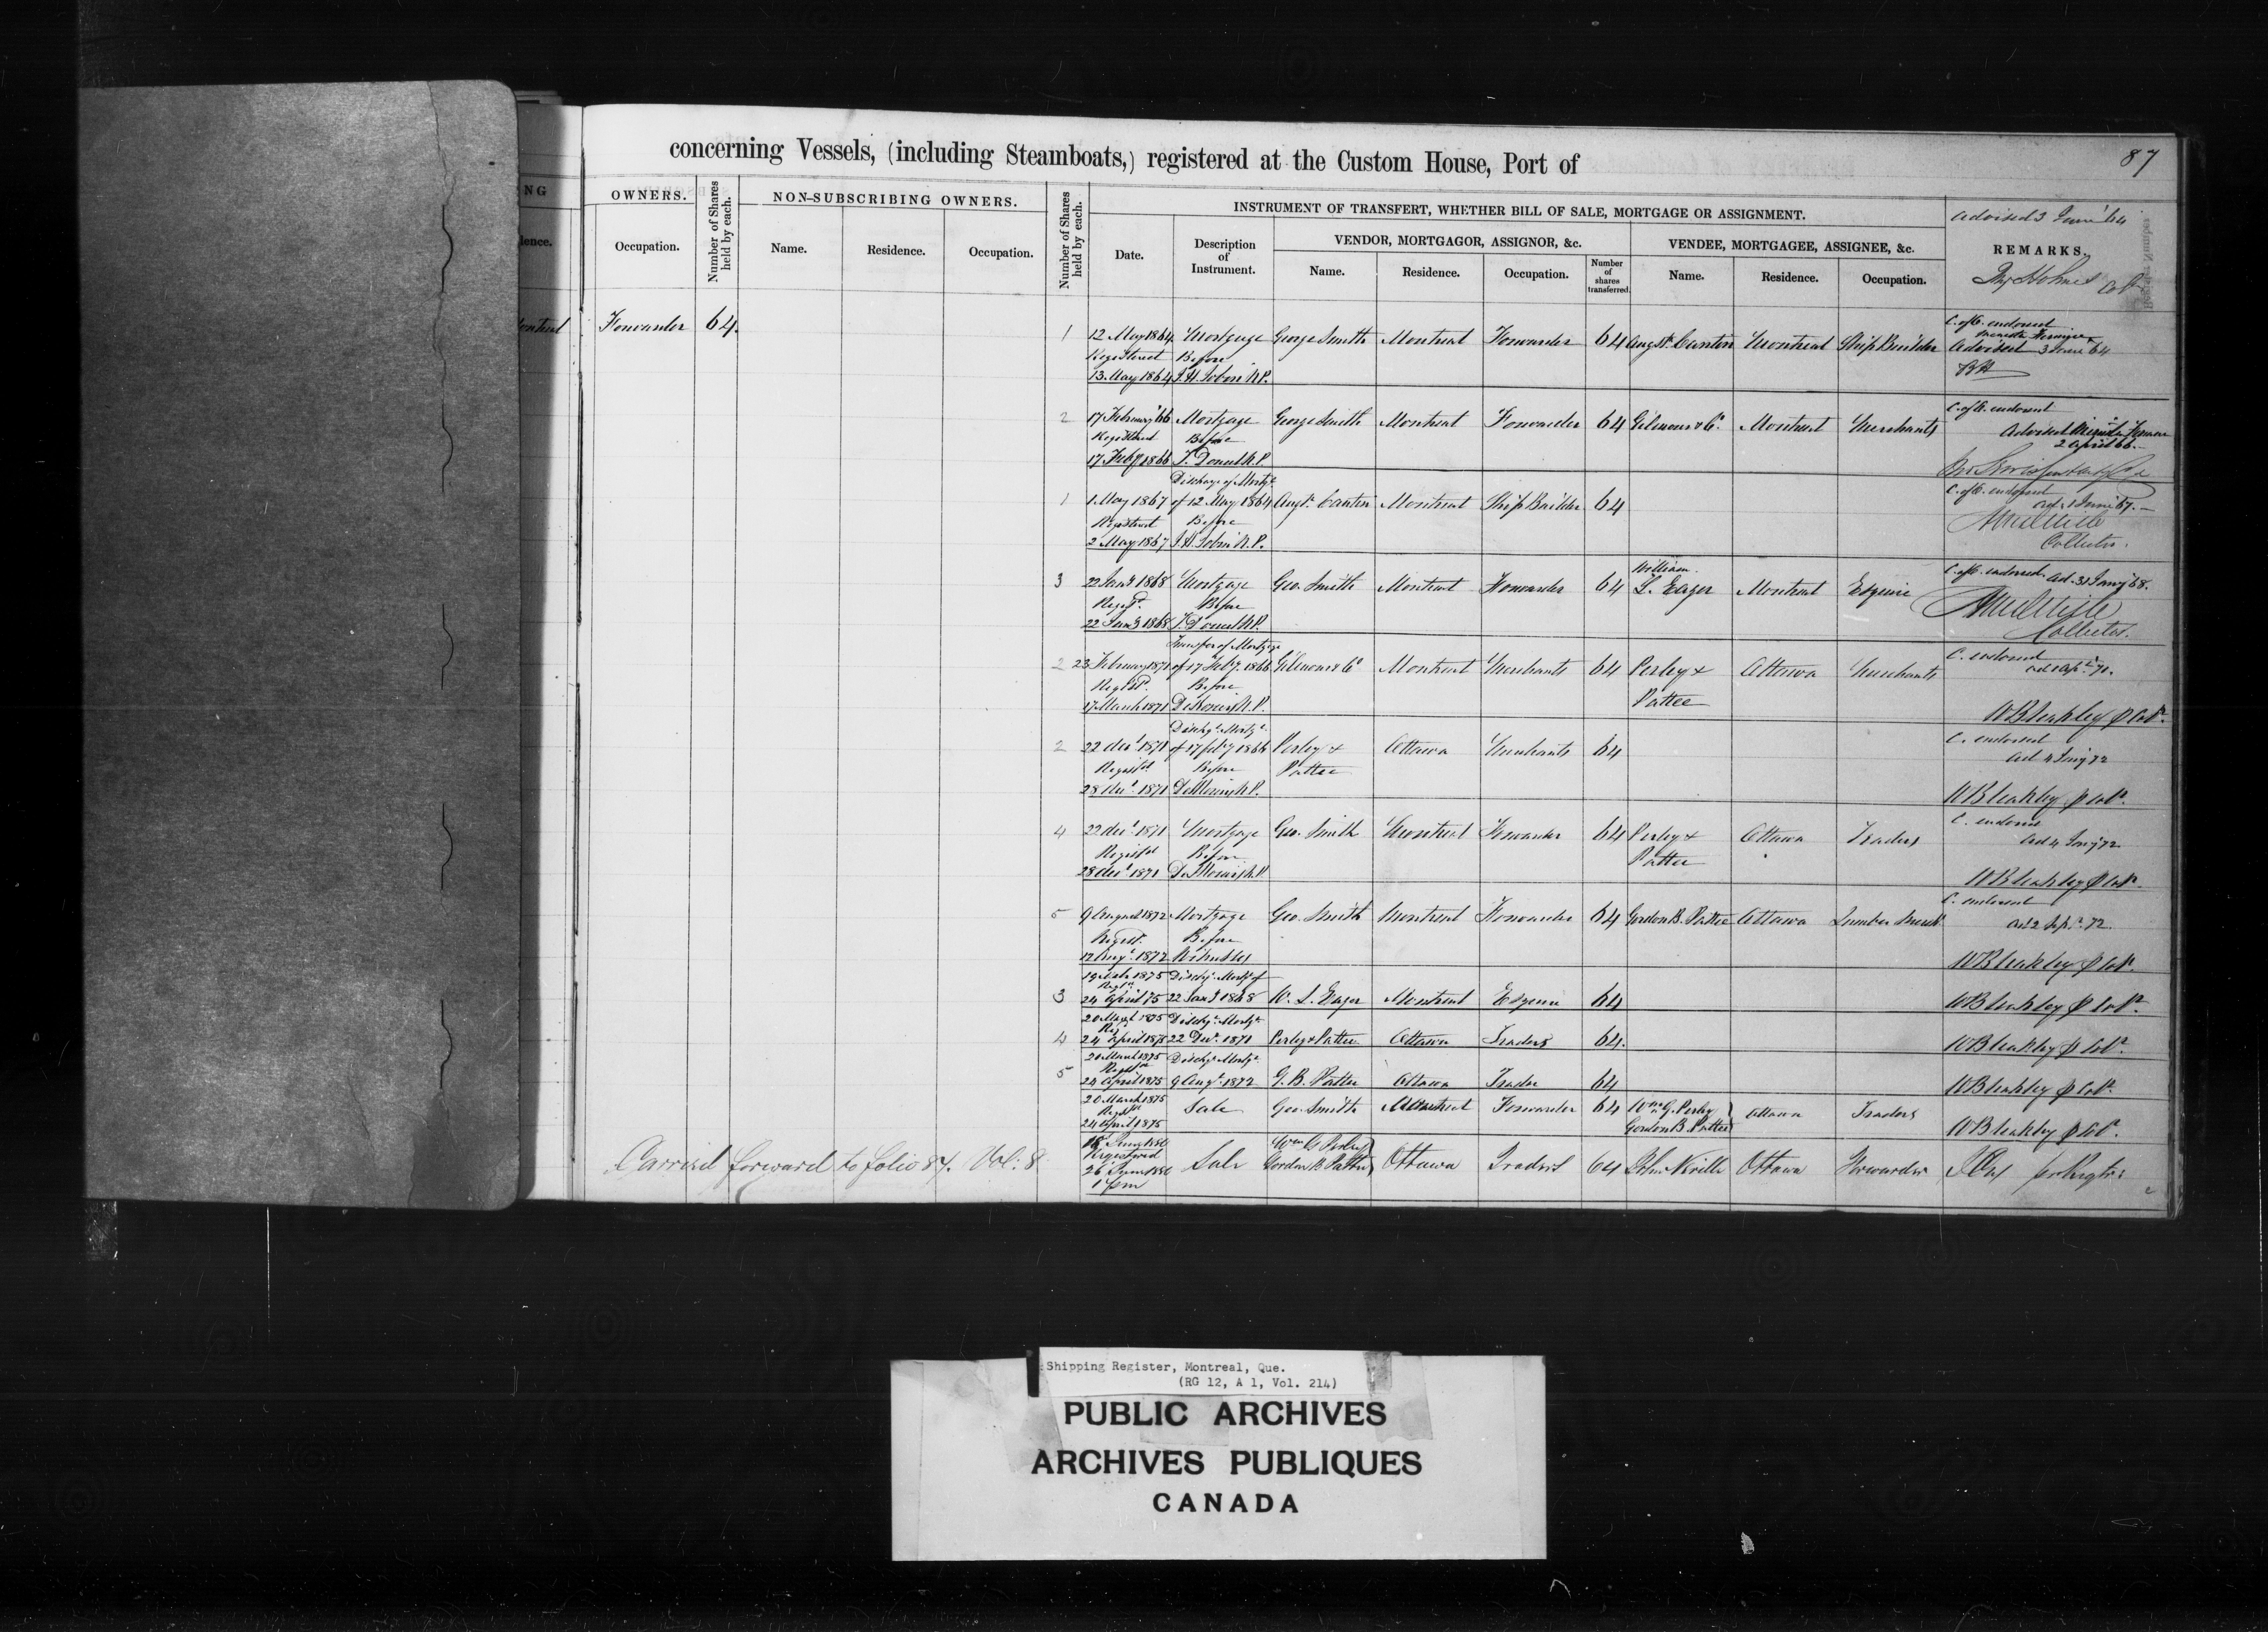 87
concerning Vessels, (including Steamboats,) registered at the Custom House, Port of
NG
OWNERS.
Number of Shares held by each.
NON-SUBSCRIBING OWNERS.
Number of Shares held by each.
INSTRUMENT OF TRANSFERT, WHETHER BILL OF SALE, MORTGAGE OR ASSIGNMENT.
Advised 3 June '64
REMARKS.
lence.
Occupation.
Name.
Residence.
Occupation.
Date.
Description of Instrument.
VENDOR, MORTGAGOR, ASSIGNOR, &c.
VENDEE, MORTGAGEE, ASSIGNEE, &c.
Name.
Residence.
Occupation.
Number of shares transferred.
Name.
Residence.
Occupation.
Forwarder 64.
1 12 May 1864 Mortgage George Smith Montreal Forwarder 64 Augst. Cantin Montreal Ship Builder C. of C. endorsed
Registered Before Advised 3 June 64
13 May 1864 N.P.
2 17 February '66 Mortgage George Smith Montreal Forwarder 64 Gilmour & Co. Montreal Merchants C. of C. endorsed
Registered Before Advised
17 Feby 1866 N.P. 2 April 66.
Discharge of Mortge
1 1 May 1867 of 12 May 1864 Augt. Cantin Montreal Ship Builder 64 C. of C. endorsed
Registered Before
2 May 1867 N.P. Collector.
William
3 22 Jany 1868 Mortgage Geo. Smith Montreal Forwarder 64 L. Eager Montreal Esquire C. of C. endorsed. Ad. 31 Jany 68.
Registd. Before
22 Jany 1868 N.P. Collector.
Transfer of Mortgage
2 23 February 1871 of 17 Feby 1866 Gilmour & Co Montreal Merchants 64 Perley & Ottawa Merchants C. endorsed
Registd. Before Pattee
17 March 1871 N.P. W Bleakley p Colr.
Dischge Mortge
2 22 Decr 1871 of 17 feby 1866 Perley & Ottawa Merchants 64 C. endorsed
Registd Before Pattee Ad 4 Jany 72
28 Decr 1871 N.P. W Bleakley p Colr.
4 22 Decr 1871 Mortgage Geo. Smith Montreal Forwarder 64 Perley & Ottawa Traders C. endorsed
Registd Before Pattee Ad 4 Jany 72
28 Decr 1871 N.P. W Bleakley p Colr.
5 9 August 1872 Mortgage Geo. Smith Montreal Forwarder 64 Gordon B. Pattee Ottawa Lumber Mercht C. endorsed
Registd. Before Ad 2 Sepr. 72.
12 Augt. 1872 W Bleakley p Colr.
1875 Dischge Mortge of
3 24 April 75 22 Jany 1868 W. L. Eager Montreal Esquire 64 W Bleakley p Colr.
1875 Dischge Mortge
4 24 April 1875 22 Decr. 1871 Perley & Pattee Ottawa Traders 64. W Bleakley p Colr.
20 March 1875 Dischge Mortge
5 24 April 1875 9 Augt. 1872 G. B. Pattee Ottawa Trader 64 W Bleakley p Colr.
20 March 1875
Registd Sale Geo. Smith Montreal Forwarder 64 Wm G. Perley Ottawa Traders
24 April 1875 Gordon B. Pattee W Bleakley p Colr.
Wm G Perley
Registered Sale Gordon B Pattee Ottawa Traders 64 John Neville Ottawa Forwarder
1 pm
Carried forward to folio 87. Vol: 8
Shipping Register, Montreal, Que.
(RG 12, A 1, Vol. 214)
PUBLIC ARCHIVES
ARCHIVES PUBLIQUES
CANADA